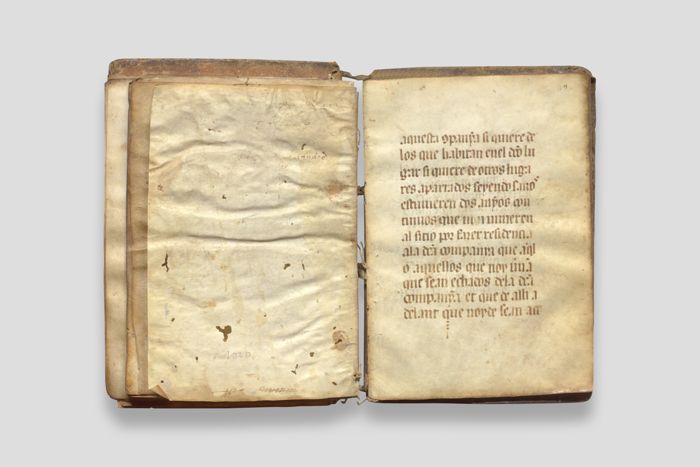 aquesta ꝯpanya si quiere de
los que habitan enel dc̃o lu
gar si quiere de otros luga
res apartados seyendo sanos
estuuieren dos anyos con
tinuos que uinieren
al sitio por fazer residencia
ala dc̃a companya que aq̃l
o aquellos que noy
que sean echados dela dc̃a
companya et que de alli a
delant que noy de sean